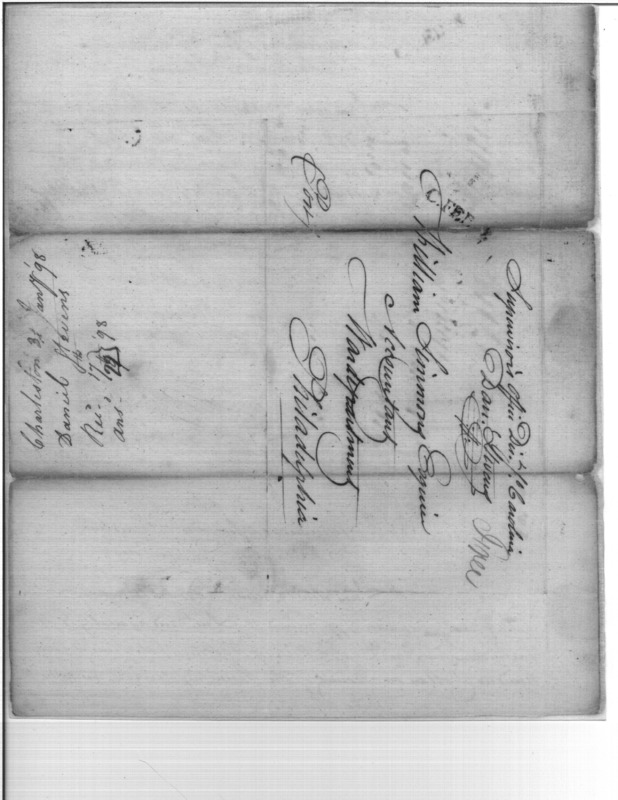 Supervisor's Office Dist. of So. Carolina
Dan. Stevens
Free
FEE
William Simmons Esquire
Accountant
War department
Philadelphia
Charleston 31 Jany '98
Daniel Stevens
Rec. '98
ans.